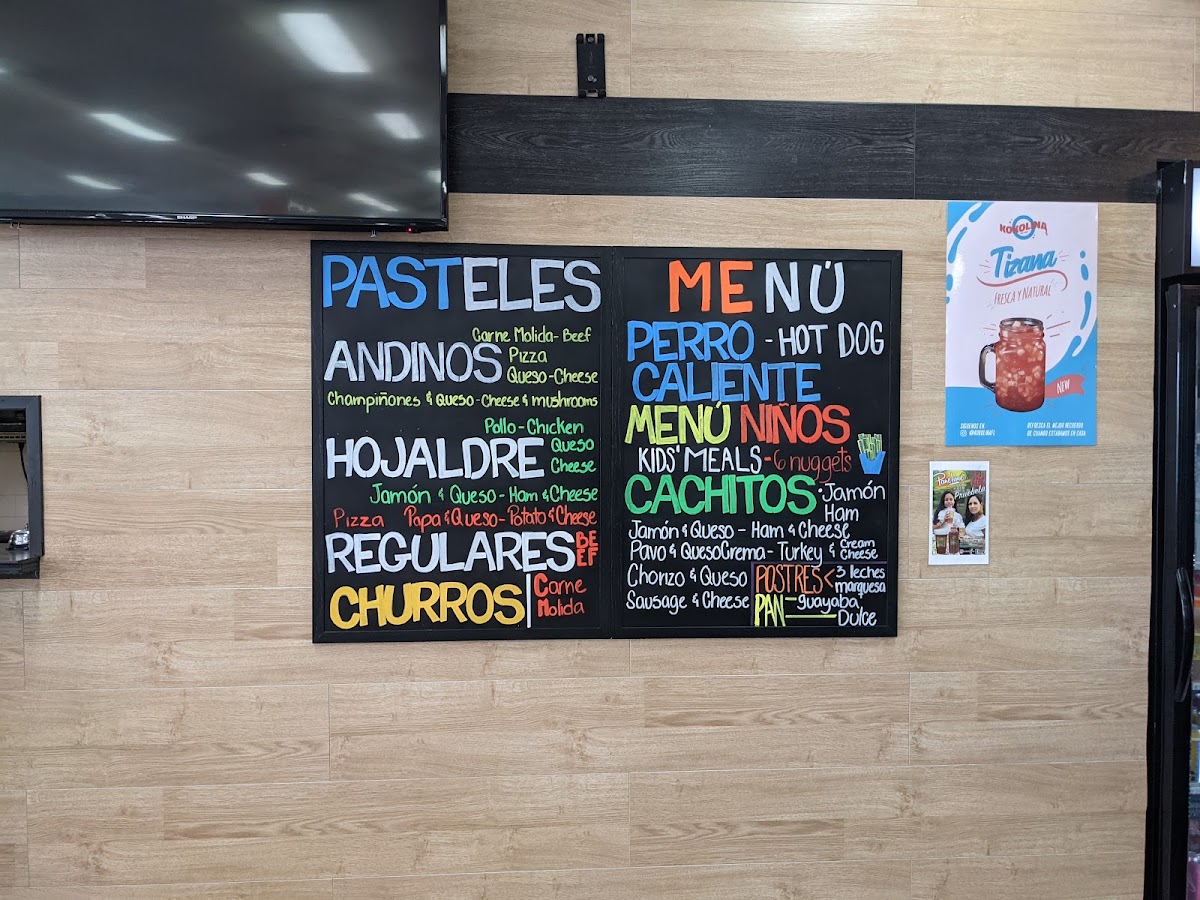 PASTELES
Carne Molida - Beef
ANDINOS Pizza
Queso - Cheese
Champiñones & Queso - Cheese & mushrooms
Pollo - Chicken
HOJALDRE Queso
Cheese
Jamón & Queso - Ham & Cheese
Pizza Papa & Queso - Potato & Cheese
REGULARES BEEF
CHURROS Carne
Molida
MENÚ
PERRO - HOT DOG
CALIENTE
MENÚ NIÑOS
KIDS' MEALS - 6 nuggets
CACHITOS · Jamón
Ham
Jamón & Queso - Ham & Cheese
Pavo & QuesoCrema - Turkey & Cream Cheese
Chorizo & Queso
Sausage & Cheese
POSTRES < 3 leches
marquesa
PAN guayaba
Dulce
KOKOLINA
Tizana
FRESCA Y NATURAL
NEW
SIGUENOS EN
@KOKOLINAFL
REFRESCA EL MEJOR RECUERDO
DE CUANDO ESTABAMOS EN CASA